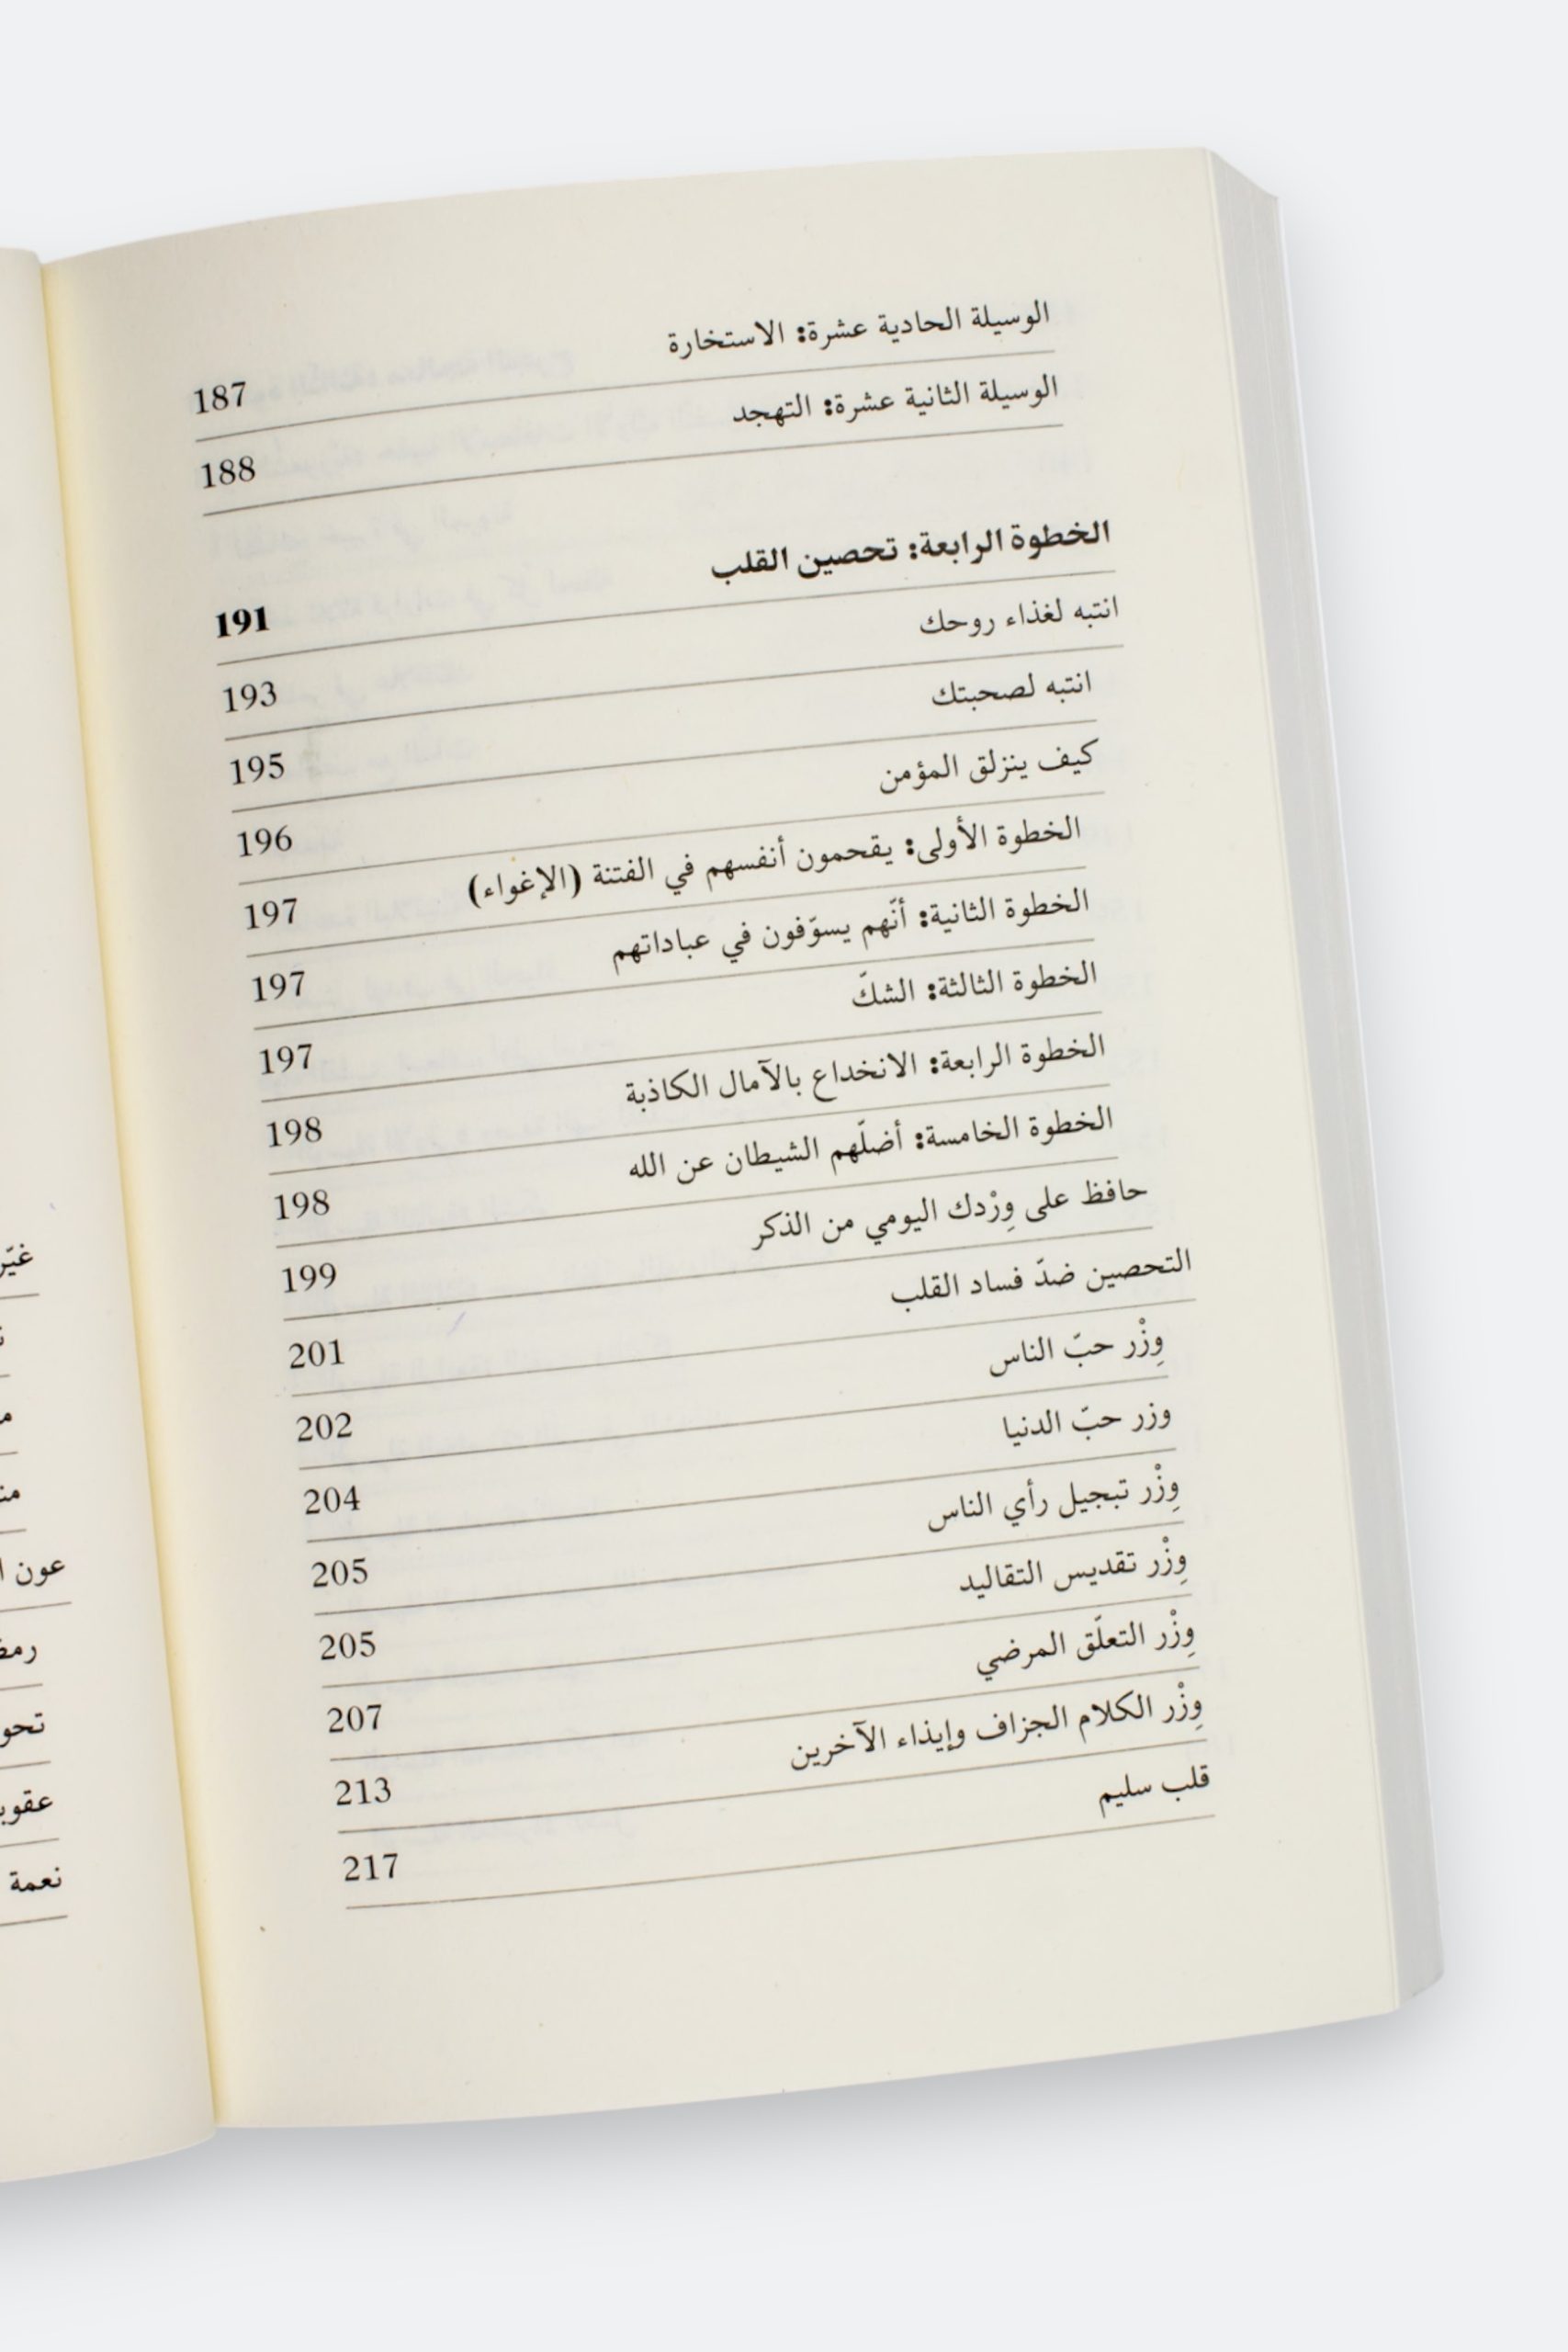 الوسيلة الحادية عشرة: الاستخارة 187
الوسيلة الثانية عشرة: التهجد 188
الخطوة الرابعة: تحصين القلب 191
انتبه لغذاء روحك 193
انتبه لصحبتك 195
كيف ينزلق المؤمن 196
الخطوة الأولى: يقحمون أنفسهم في الفتنة (الإغواء) 197
الخطوة الثانية: أنّهم يسوّفون في عباداتهم 197
الخطوة الثالثة: الشكّ 197
الخطوة الرابعة: الانخداع بالآمال الكاذبة 198
الخطوة الخامسة: أضلّهم الشيطان عن الله 198
حافظ على وِرْدك اليومي من الذكر 199
التحصين ضدّ فساد القلب 201
وِزْر حبّ الناس 202
وزر حبّ الدنيا 204
وِزْر تبجيل رأي الناس 205
وِزْر تقديس التقاليد 205
وِزْر التعلّق المرضي 207
وِزْر الكلام الجزاف وإيذاء الآخرين 213
قلب سليم 217
عون
نعمة